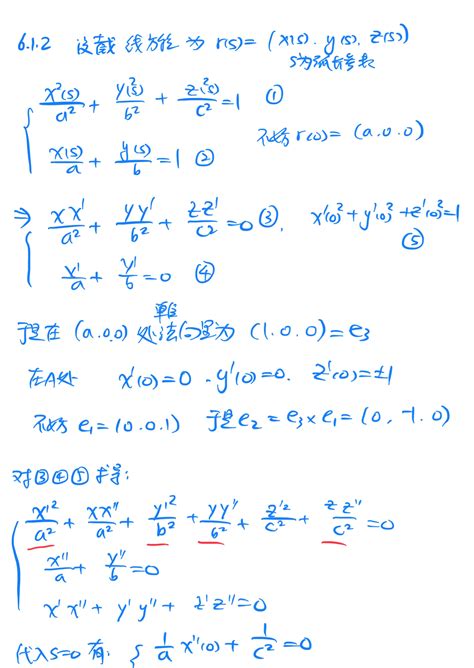 6.1.2 设截线方程为 r(s) = (x(s), y(s), z(s))
s为弧长参数
{ x²(s)/a² + y²(s)/b² + z²(s)/c² = 1 ①
不妨 r(0) = (a.0.0)
x(s)/a + y(s)/b = 1 ②
⇒ { xx'/a² + yy'/b² + zz'/c² = 0 ③, x'(0)² + y'(0)² + z'(0)² = 1
⑤
x'/a + y'/b = 0 ④
单位
于是在 (a.0.0) 处法向量为 (1.0.0) = e₃
在A处 x'(0) = 0 , y'(0) = 0. z'(0) = ±1
不妨 e₁ = (0.0.1) 于是 e₂ = e₃ × e₁ = (0, -1.0)
对③④⑤求导:
{ x'²/a² + xx''/a² + y'²/b² + yy''/b² + z'²/c² + zz''/c² = 0
x''/a + y''/b = 0
x'x'' + y'y'' + z'z'' = 0
代入 s=0 有: { 1/a x''(0) + 1/c² = 0